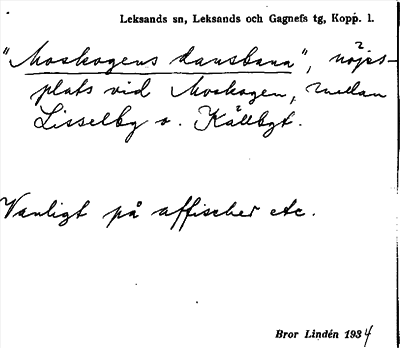 Leksands sn, Leksands och Gagnefs tg, Kopp. l.
"Moskogens dansbana", nöjes-
plats vid Moskogen, mellan
Lisselby o. Kållbyt.
Vanligt på affischer etc.
Bror Lindén 1934